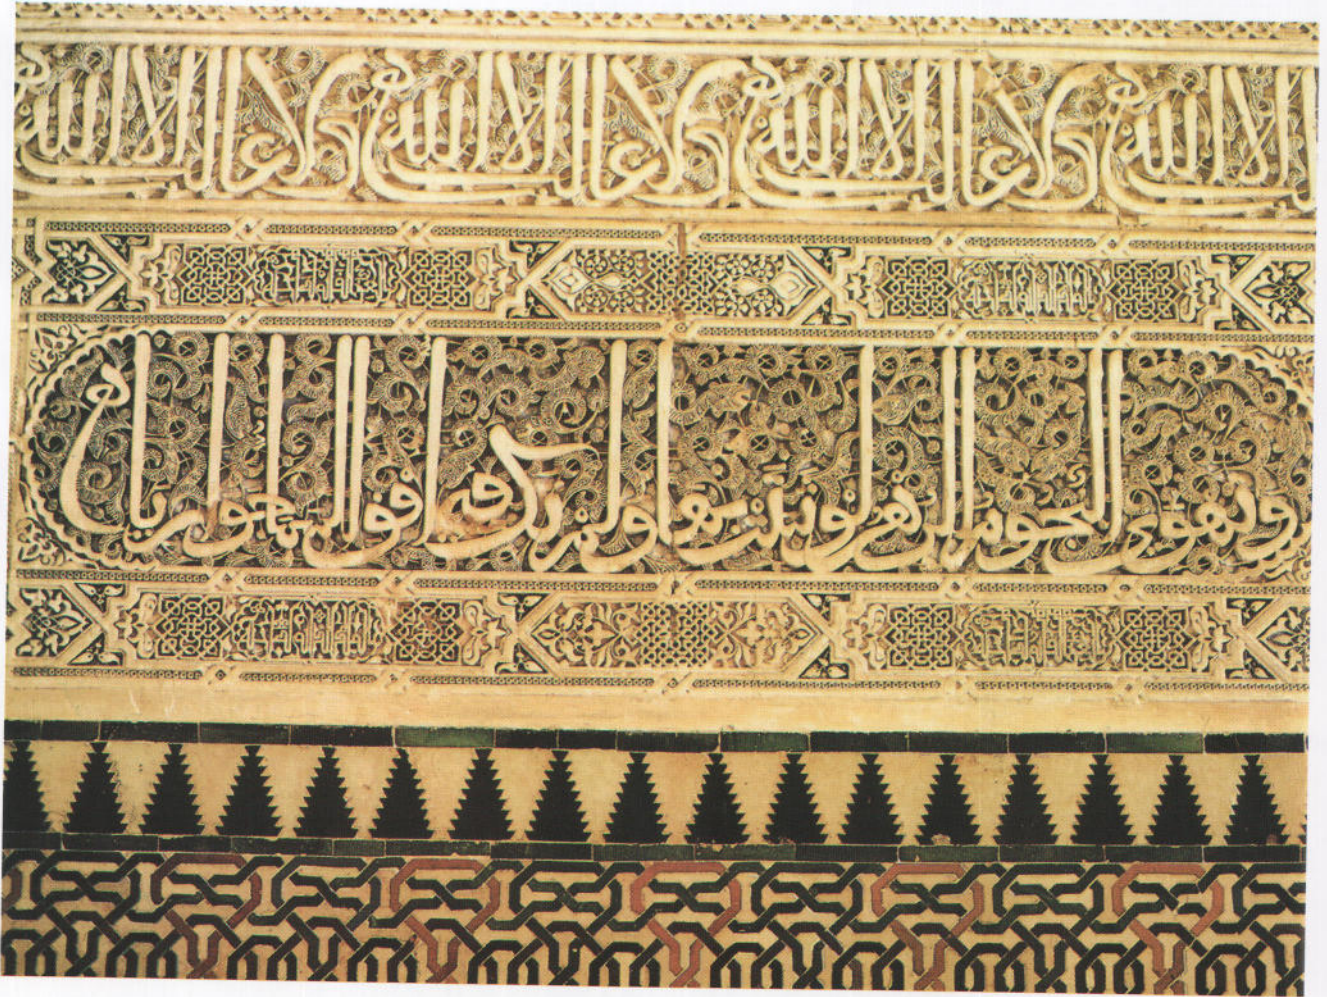 الا الله ولا غالب الا الله ولا غالب الا الله ولا غالب الا الله
وتهوى النجوم الزهر لو ثبتت بها ولم تك في افق السماء جواريا